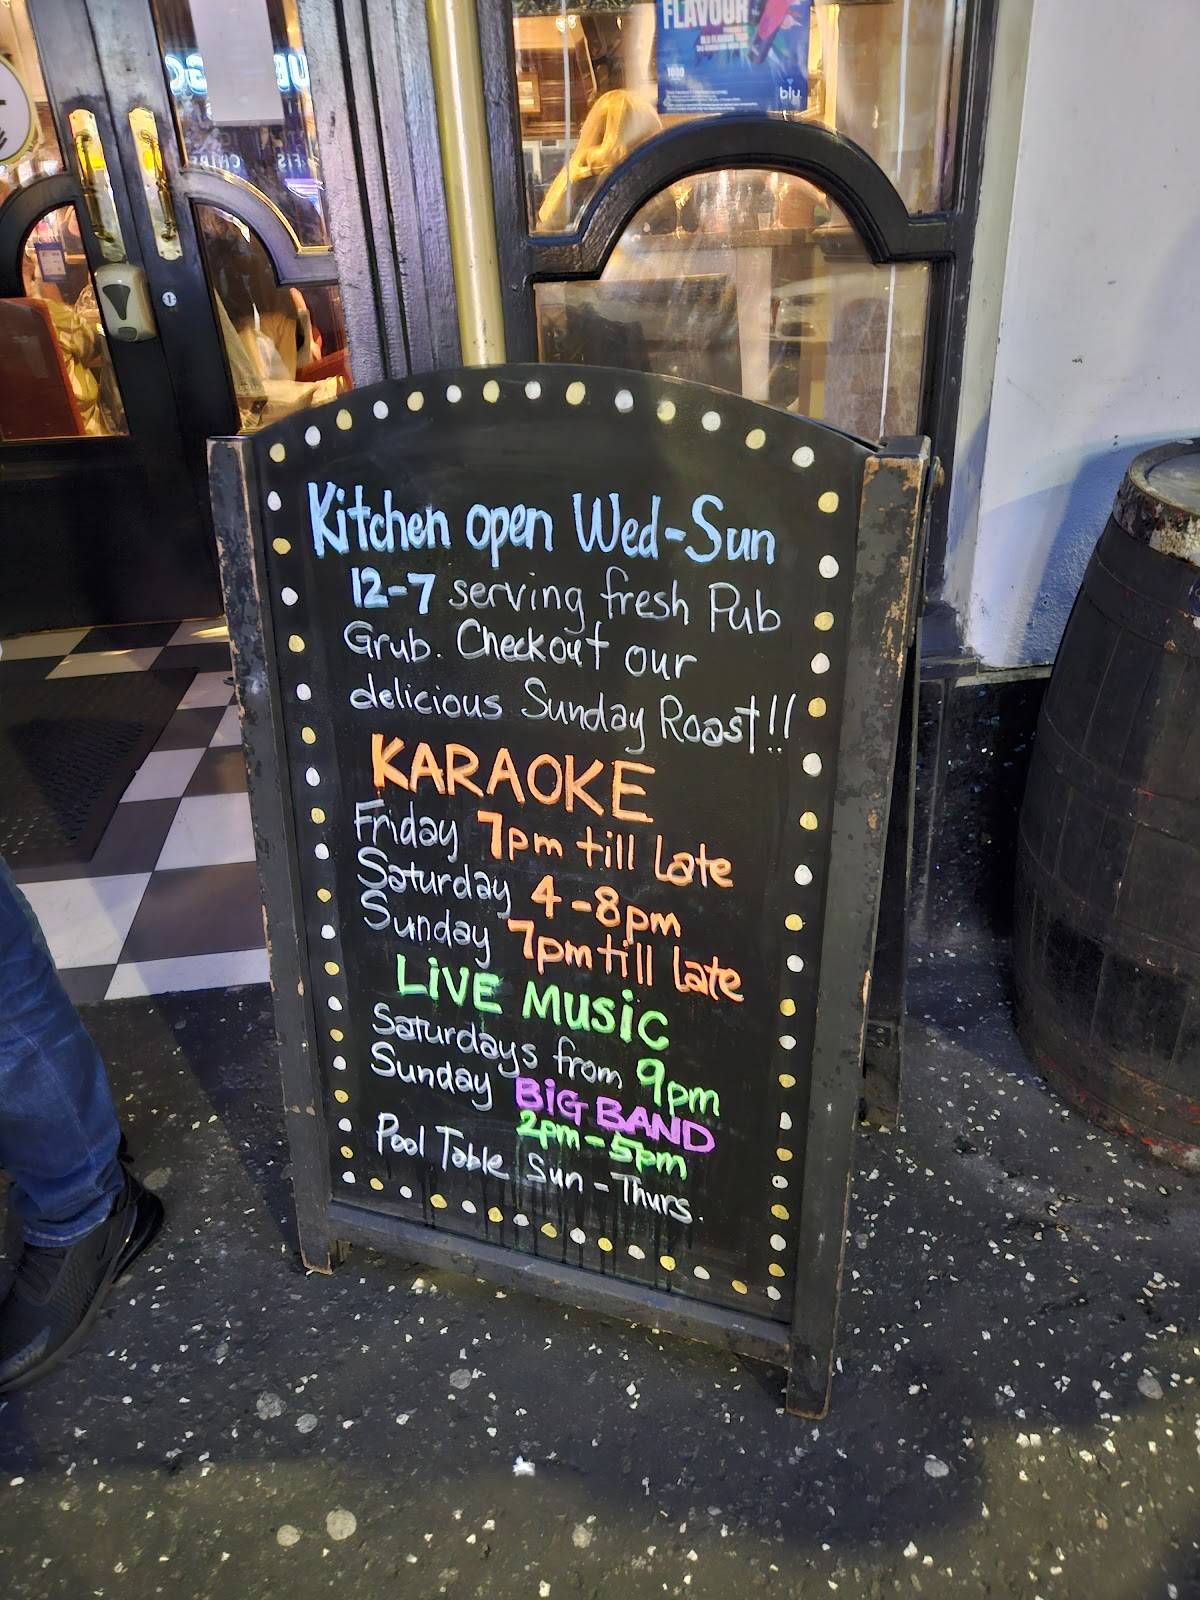 FLAVOUR
blu
Kitchen open Wed-Sun
12-7 serving fresh Pub
Grub. Checkout our
delicious Sunday Roast!!
KARAOKE
Friday 7pm till late
Saturday 4-8pm
Sunday 7pm till late
LiVE MUSiC
Saturdays from 9pm
Sunday BiG BAND
2pm-5pm
Pool Table Sun-Thurs.